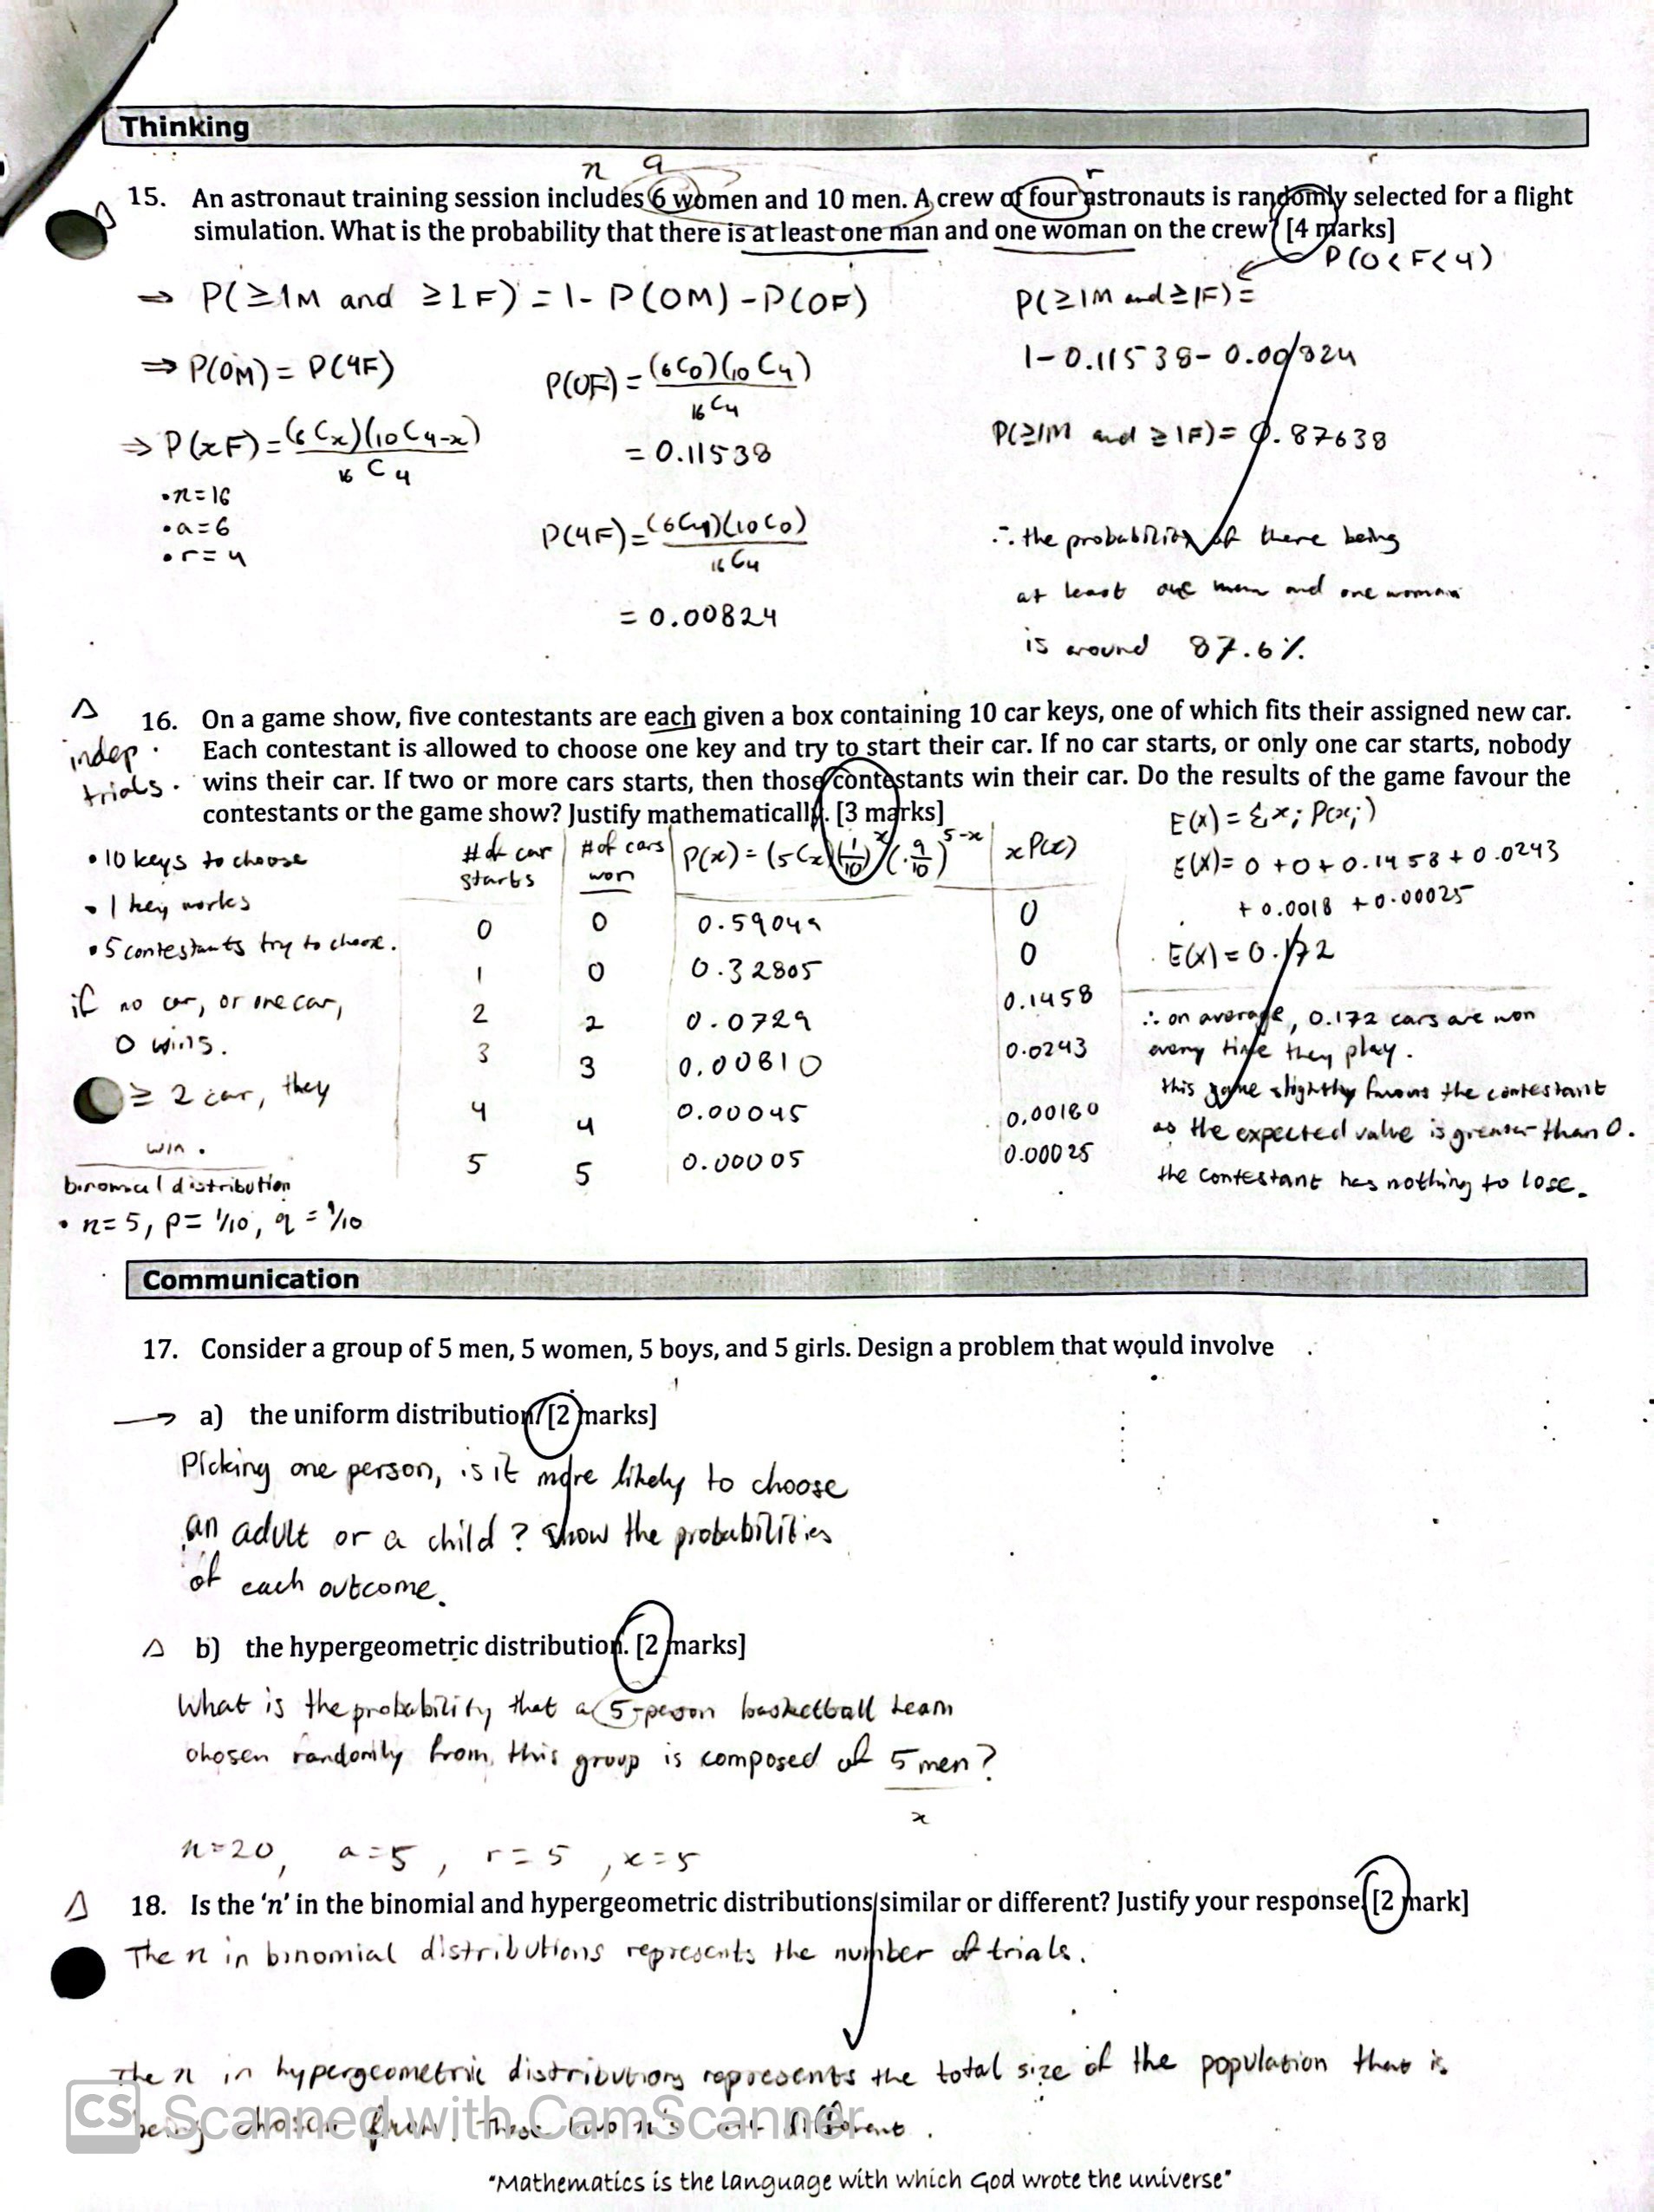 Thinking
n a r r
15. An astronaut training session includes 6 women and 10 men. A crew of four astronauts is randomly selected for a flight
simulation. What is the probability that there is at least one man and one woman on the crew? [4 marks]
P(0<F<4)
⇒ P(≥1M and ≥1F) = 1 - P(0M) - P(0F)
⇒ P(0M) = P(4F)
⇒ P(xF) = (6Cx)(10C4-x)
16C4
• n=16
• a=6
• r=4
P(0F) = (6C0)(10C4)
16C4
= 0.11538
P(4F) = (6C4)(10C0)
16C4
= 0.00824
P(≥1M and ≥1F) =
1-0.11538-0.00824
P(≥1M and ≥1F) = 0.87638
∴ the probability of there being
at least one man and one woman
is around 87.6%
16. On a game show, five contestants are each given a box containing 10 car keys, one of which fits their assigned new car.
Each contestant is allowed to choose one key and try to start their car. If no car starts, or only one car starts, nobody
wins their car. If two or more cars starts, then those contestants win their car. Do the results of the game favour the
contestants or the game show? Justify mathematically. [3 marks]
indep.
trials.
• 10 keys to choose
• 1 key works
• 5 contestants try to choose.
if no car, or one car,
0 wins.
≥ 2 car, they
win.
binomial distribution
• n=5, p=1/10, q=9/10
# of car starts | # of cars won | P(x) = (5Cx)(1/10)^x(9/10)^5-x | xP(x)
0 0 0.59049 0
1 0 0.32805 0
2 2 0.0729 0.1458
3 3 0.00810 0.0243
4 4 0.00045 0.00180
5 5 0.00005 0.00025
E(X) = Σxi P(xi)
E(X) = 0+0+0.1458+0.0243
+0.0018+0.00025
E(X) = 0.172
∴ on average, 0.172 cars are won
every time they play.
this game slightly favours the contestant
as the expected value is greater than 0.
the contestant has nothing to lose.
Communication
17. Consider a group of 5 men, 5 women, 5 boys, and 5 girls. Design a problem that would involve
→ a) the uniform distribution. [2 marks]
Picking one person, is it more likely to choose
an adult or a child? Show the probabilities
of each outcome.
b) the hypergeometric distribution. [2 marks]
What is the probability that a 5-person basketball team
chosen randomly from this group is composed of 5 men?
x
n=20, a=5, r=5, x=5
18. Is the 'n' in the binomial and hypergeometric distributions similar or different? Justify your response. [2 mark]
The n in binomial distributions represents the number of trials.
The n in hypergeometric distributions represents the total size of the population that is
being chosen from. These two n's are different.
CS Scanned with CamScanner
"Mathematics is the language with which God wrote the universe"